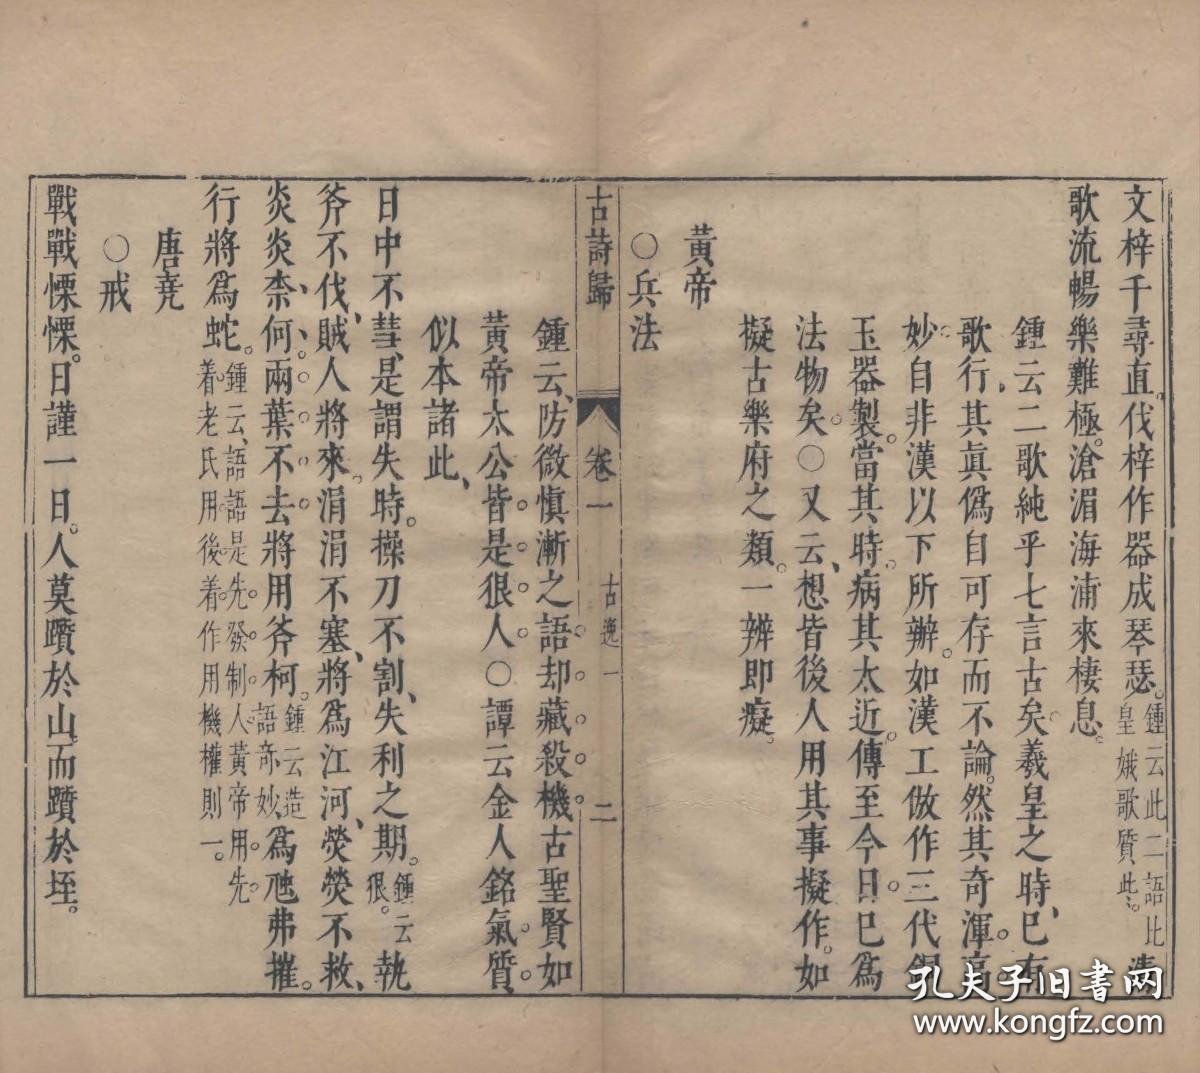 文梓千尋直。伐梓作器成琴瑟。鍾云此二語比皇娥歌質此。清
歌流暢樂難極。滄湄海浦來棲息。
鍾云二歌純乎七言古矣。羲皇之時、已有
歌行、其眞僞自可存而不論。然其奇渾高
妙。自非漢以下所辦。如漢工倣作三代銅
玉器製。當其時。病其太近。傳至今日。已爲
法物矣。○又云、想皆後人用其事擬作。如
擬古樂府之類。一辨卽癡。
黃帝
○兵法
古詩歸
卷一
古逸一
二
鍾云、防微愼漸之語。却藏殺機。古聖賢如
黃帝太公。皆是很人。○譚云金人銘氣質、
似本諸此、
日中不彗、是謂失時。操刀不割、失利之期。鍾云很。執
斧不伐、賊人將來。涓涓不塞、將爲江河、熒熒不救、
炎炎柰何。兩葉不去。將用斧柯。鍾云造語奇妙、爲虺弗摧。
行將爲蛇。鍾云、語語是先發制人。黃帝用先着老氏用後着作用機權則一。
唐堯
○戒
戰戰慄慄。日謹一日。人莫躓於山。而躓於垤。
孔夫子旧书网
www.kongfz.com